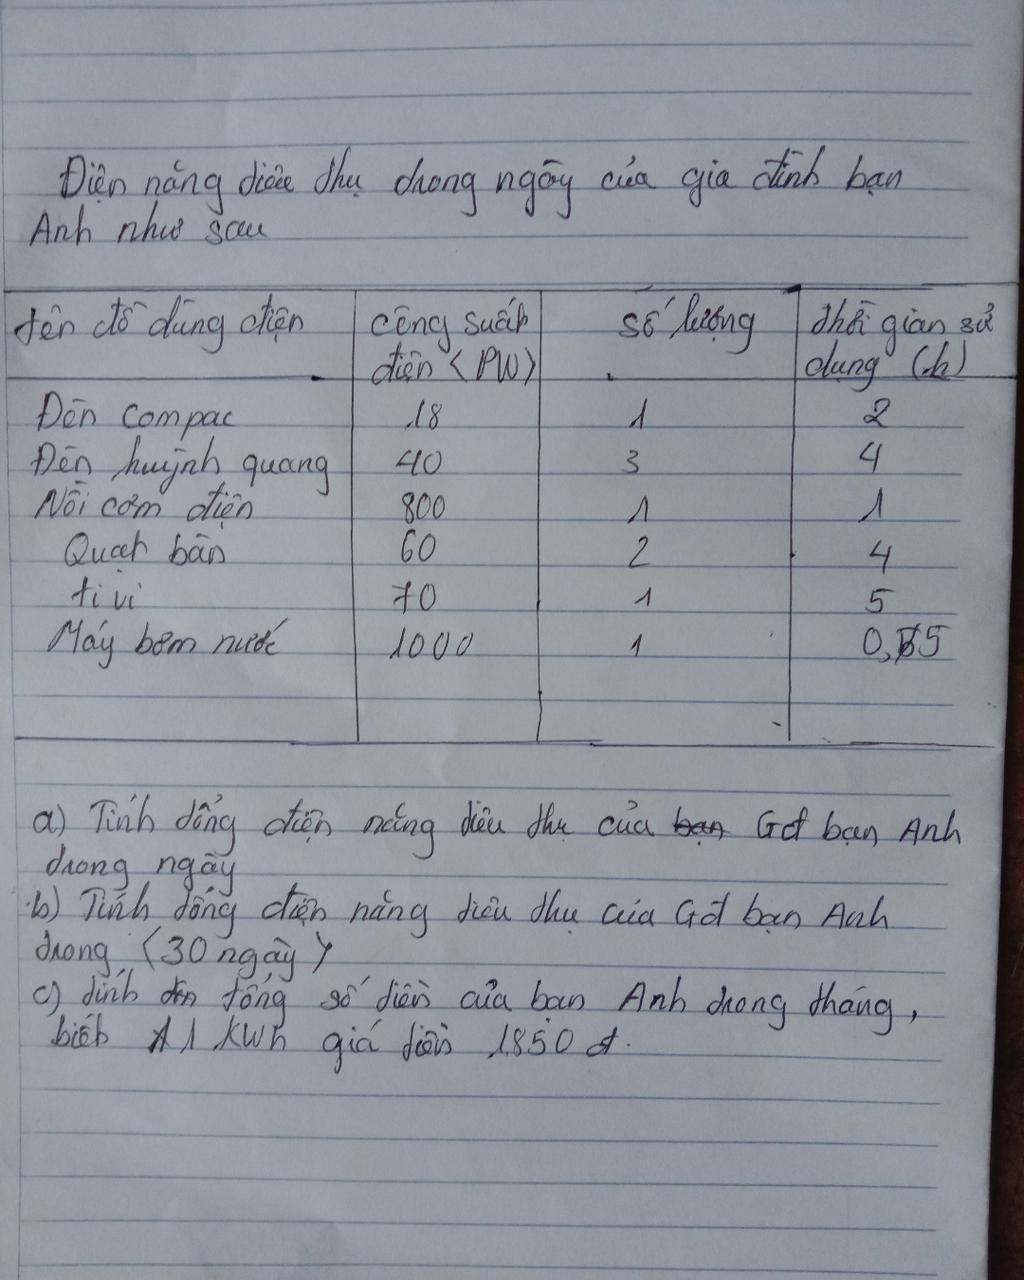 Điện năng tiêu thụ trong ngày của gia đình bạn
Anh như sau
tên đồ dùng điện công suất số lượng thời gian sử
điện (PW) dụng (h)
Đèn compac 18 1 2
Đèn huỳnh quang 40 3 4
Nồi cơm điện 800 1 1
Quạt bàn 60 2 4
ti vi 70 1 5
Máy bơm nước 1000 1 0,5
a) Tính tổng điện năng tiêu thụ của bạn Gđ bạn Anh
trong ngày
b) Tính tổng điện năng tiêu thụ của Gđ bạn Anh
trong (30 ngày)
c) tính tổng số tiền của bạn Anh trong tháng,
biết 1 kWh giá tiền 1850 đ.